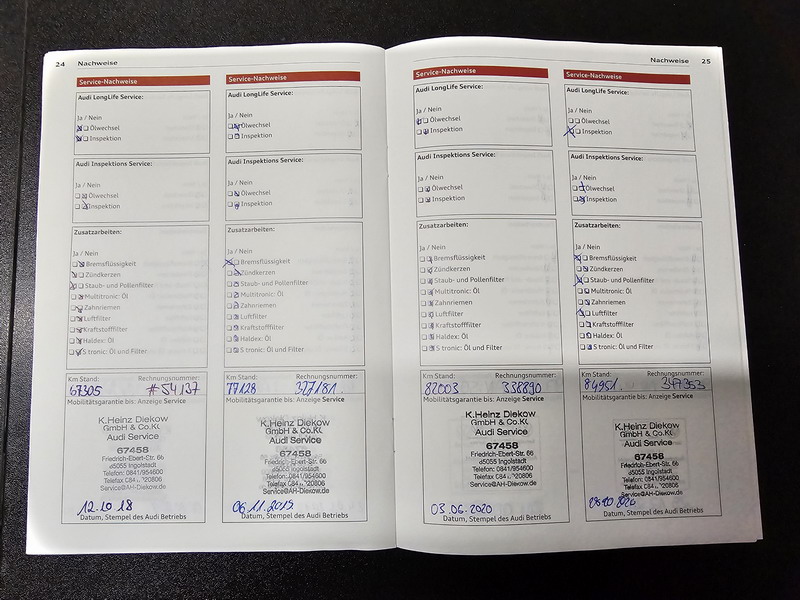 24 Nachweise
Service-Nachweise
Audi LongLife Service:
Ja / Nein
Ölwechsel
Inspektion
Audi Inspektions Service:
Ja / Nein
Ölwechsel
Inspektion
Zusatzarbeiten:
Ja / Nein
Bremsflüssigkeit
Zündkerzen
Staub- und Pollenfilter
Multitronic: Öl
Zahnriemen
Luftfilter
Kraftstofffilter
Haldex: Öl
S tronic: Öl und Filter
Km Stand: Rechnungsnummer:
67305 #54137
Mobilitätsgarantie bis: Anzeige Service
K.Heinz Diekow
GmbH & Co.KG
Audi Service
67458
Friedrich-Ebert-Str. 66
85055 Ingolstadt
Telefon: 0841/954600
Service@AH-Diekow.de
12.10 18
Datum, Stempel des Audi Betriebs
Service-Nachweise
Audi LongLife Service:
Ja / Nein
Ölwechsel
Inspektion
Audi Inspektions Service:
Ja / Nein
Ölwechsel
Inspektion
Zusatzarbeiten:
Ja / Nein
Bremsflüssigkeit
Zündkerzen
Staub- und Pollenfilter
Multitronic: Öl
Zahnriemen
Luftfilter
Kraftstofffilter
Haldex: Öl
S tronic: Öl und Filter
Km Stand: Rechnungsnummer:
77128 327181
Mobilitätsgarantie bis: Anzeige Service
K.Heinz Diekow
GmbH & Co.KG
Audi Service
67458
Friedrich-Ebert-Str. 66
85055 Ingolstadt
Telefon: 0841/954600
Service@AH-Diekow.de
06.11.2019
Datum, Stempel des Audi Betriebs
Nachweise 25
Service-Nachweise
Audi LongLife Service:
Ja / Nein
Ölwechsel
Inspektion
Audi Inspektions Service:
Ja / Nein
Ölwechsel
Inspektion
Zusatzarbeiten:
Ja / Nein
Bremsflüssigkeit
Zündkerzen
Staub- und Pollenfilter
Multitronic: Öl
Zahnriemen
Luftfilter
Kraftstofffilter
Haldex: Öl
S tronic: Öl und Filter
Km Stand: Rechnungsnummer:
82003 338890
Mobilitätsgarantie bis: Anzeige Service
K.Heinz Diekow
GmbH & Co.KG
Audi Service
67458
Friedrich-Ebert-Str. 66
85055 Ingolstadt
Telefon: 0841/954600
Service@AH-Diekow.de
03.06.2020
Datum, Stempel des Audi Betriebs
Service-Nachweise
Audi LongLife Service:
Ja / Nein
Ölwechsel
Inspektion
Audi Inspektions Service:
Ja / Nein
Ölwechsel
Inspektion
Zusatzarbeiten:
Ja / Nein
Bremsflüssigkeit
Zündkerzen
Staub- und Pollenfilter
Multitronic: Öl
Zahnriemen
Luftfilter
Kraftstofffilter
Haldex: Öl
S tronic: Öl und Filter
Km Stand: Rechnungsnummer:
84951 347353
Mobilitätsgarantie bis: Anzeige Service
K.Heinz Diekow
GmbH & Co.KG
Audi Service
67458
Friedrich-Ebert-Str. 66
85055 Ingolstadt
Telefon: 0841/954600
Service@AH-Diekow.de
Datum, Stempel des Audi Betriebs